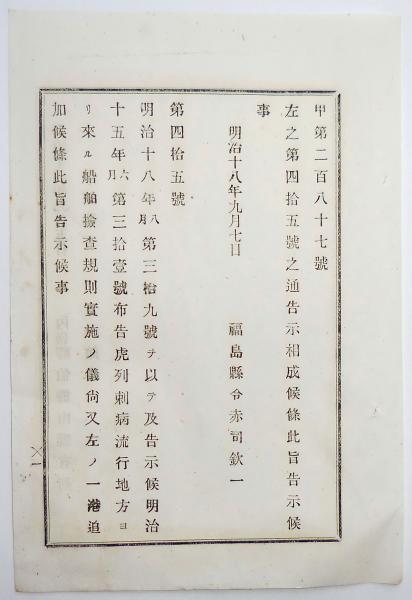 甲第二百八十七號
左之第四拾五號之通告示相成候條此旨告示候
事
明治十八年九月七日 福島縣令赤司欽一
第四拾五號
明治十八年八月第三拾九號ヲ以テ及告示候明治
十五年六月第三拾壹號布告虎列剌病流行地方ヨ
リ來ル船舶撿查規則實施ノ儀尙又左ノ一港追
加候條此旨告示候事